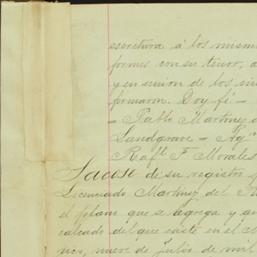 escritura á los mismos
formes con su tenor, a
y en union de los
firmaron. Doy fé -
- Pablo Martinez d
Landgrave - Ag
Raf. F. Morales
Sacose de su registro y
Licenciado Martinez del
el plano que se agrega y
calcado del que existe en el
nueve de Julio de mil